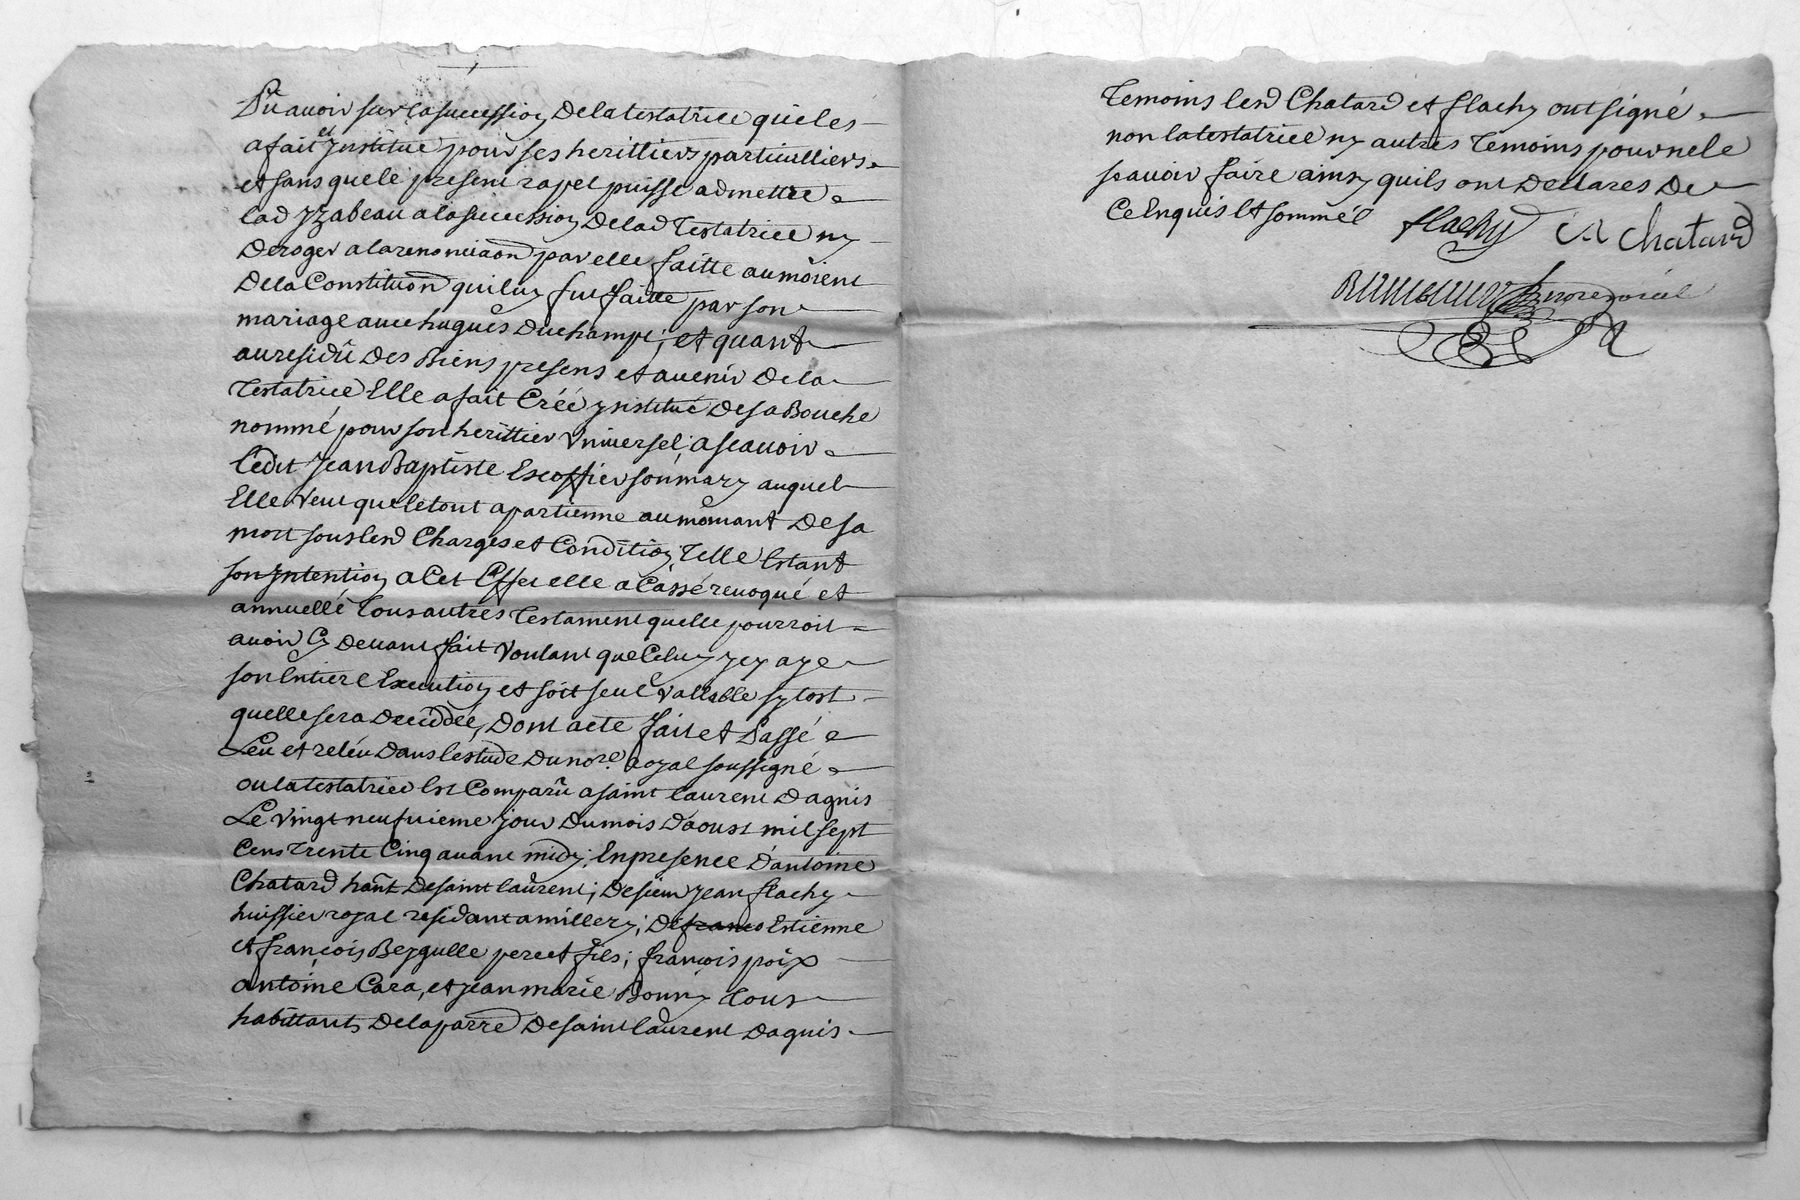 Dû avoir sur la succession de la testatrice qui les
a fait et Jnstitué pour ses herittiers particulliers
et sans que le present rapel puisse admettre
lad Yzabeau a la succession de lad Testatrice ny
deroger a la renonciaõn par elle faitte au môient
de la Constitution qui luy fut faitte par son
mariage avec hugues Duchampt, et quant
au residû des Biens presens et avenir de la
Testatrice Elle a fait Créé ynstitué de sa Bouche
nommé pour son herittier Vniversel; a scavoir
ledit Jean Baptiste Escoffier son mary auquel
Elle veut que le tout apartienne au momant de sa
mort sous lesd Charges et Condition Telle Estant
son Jntention a Cet Effet elle a Cassé revoqué et
annuellé Tous autres Testament quelle pourroit
avoir Cy devant fait Voulant que Celuy ycy aye
son Entiere Execution et soit seul vallable sy tost
quelle sera deceddée, dont acte fait et Passé
Leu et releu dans lestude du nore. Royal soussigné
ou la testatrice Est Comparû a saint laurent dagnis
Le Vingt neufvieme jour du mois daoust mil sept
Cens Trente Cinq avant midy; En presence dantoine
Chatard hant de saint laurent; de sieur Jean flachy
huissier royal residant a millery; de francs Estienne
et françois Beygulle pere et fils; françois poix
antoine Cara, et Jean marie Bonny Tous
habittants de la parre de saint laurent dagnis
Temoins lesd Chatard et flachy ont signé
non la testatrice ny autres Temoins pour ne le
scavoir faire ainsy quils ont declarés de
Ce Enquis Et sommés flachy A Chatard
nore royal